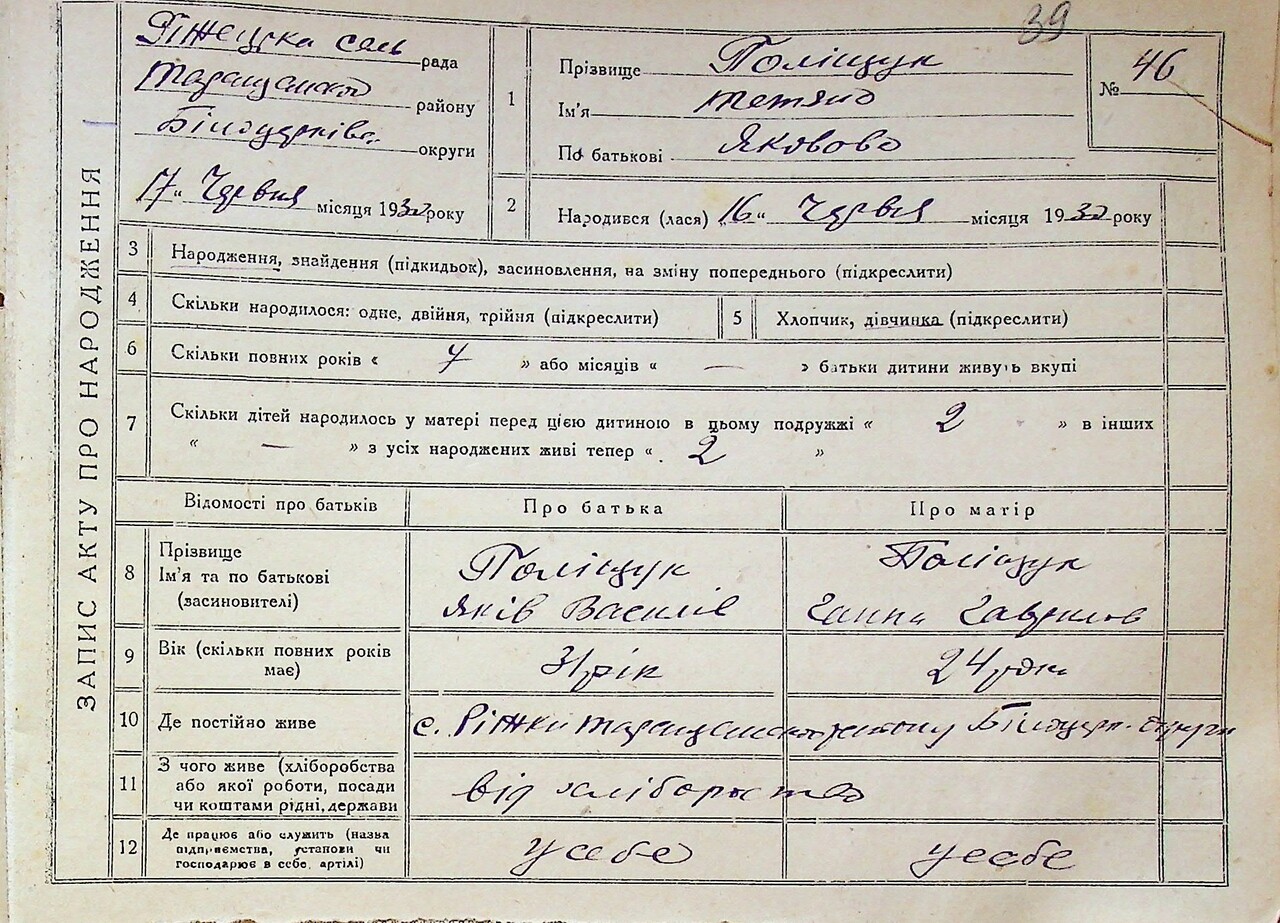 39
ЗАПИС АКТУ ПРО НАРОДЖЕННЯ
Ріжецька сель рада
Таращанського району
Білоцерків. округи
17 " Червня місяця 1930 року
1
Прізвище Поліщук
Ім'я Тетяна
По батькові Яковова
№ 46
2
Народився (лася) "16" Червня місяця 1930 року
3 Народження, знайдення (підкидьок), засиновлення, на зміну попереднього (підкреслити)
4 Скільки народилося: одне, двійня, трійня (підкреслити) 5 Хлопчик, дівчинка (підкреслити)
6 Скільки повних років « 7 » або місяців « — » батьки дитини живуть вкупі
7 Скільки дітей народилось у матері перед цією дитиною в цьому подружжі « 2 » в інших
« — » з усіх народжених живі тепер « 2 »
Відомості про батьків Про батька Про матір
8
Прізвище
Ім'я та по батькові
(засиновителі)
Поліщук
Яків Василів
Поліщук
Ганна Гаврилов
9
Вік (скільки повних років
має)
31 рік
24 роки
10 Де постійно живе с. Ріжки Таращанського району Білоцерк. округи
11
З чого живе (хліборобства
або якої роботи, посади
чи коштами рідні, держави
від хліборобства
12
Де працює або служить (назва
підприємства, установи чи
господарює в себе, артілі)
у себе
у себе